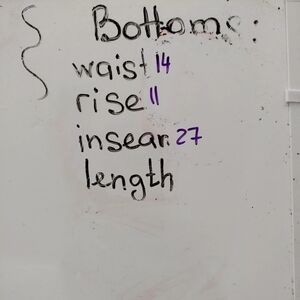 Bottoms:
waist 14
rise 11
inseam 27
length